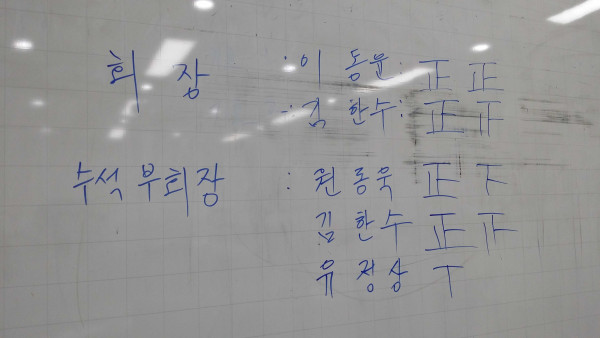 회 장 : 이 동윤 : 正 正
: 김 한수 : 正 𝍵
수석 부회장 : 권동욱 正 𝍴
김 한수 正 𝍵
유 정상 𝍳